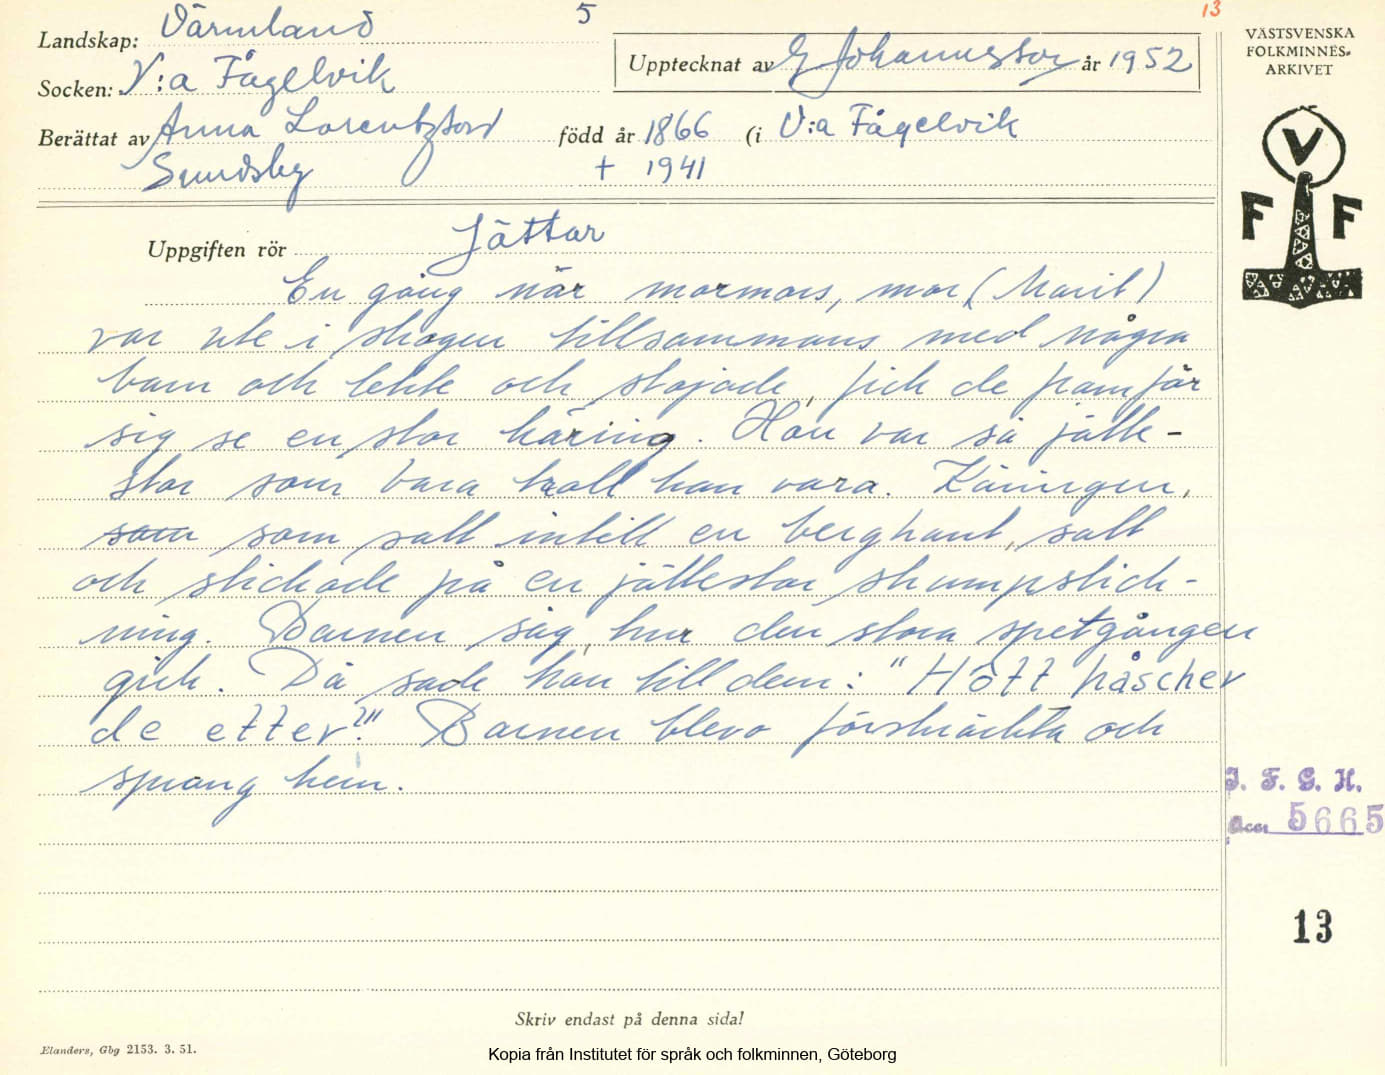 5
13
Landskap: Värmland
Socken: V:a Fågelvik
Upptecknat av G Johannesson år 1952
Berättat av Anna Lorentzson född år 1866 (i V:a Fågelvik
Sundsby + 1941
Uppgiften rör Jättar
En gång när mormors, mor (Marit)
var ute i skogen tillsammans med några
barn och lekte och stojade, fick de framför
sig se en stor käring. Hon var så jätte-
stor som bara troll kan vara. Käringen,
som som satt intill en bergkant, satt
och stickade på en jättestor strumpstick-
ning. Barnen såg, hur den stora spetgången
gick. Då sade hon till dem: "Hôtt håscher
de etter?" Barnen blevo förskräckta och
sprang hem.
VÄSTSVENSKA
FOLKMINNES-
ARKIVET
V
F F
I. F. G. H.
Acc. 5665
13
Skriv endast på denna sida!
Elanders, Gbg 2153. 3. 51.
Kopia från Institutet för språk och folkminnen, Göteborg